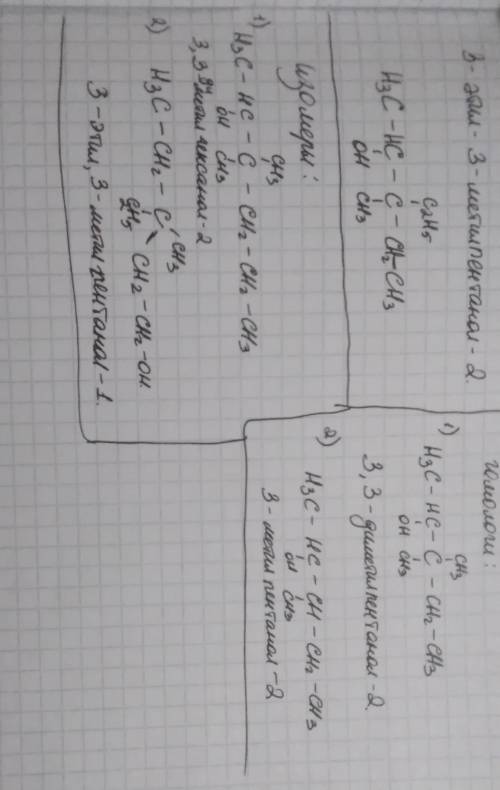 3-этил-3-метилпентанол-2.
C₂H₅
H₃C-HC-C-CH₂-CH₃
OH CH₃
Изомеры:
CH₃
1) H₃C-HC-C-CH₂-CH₂-CH₃
OH CH₃
3,3 диметилгексанол-2
2) H₃C-CH₂-C-CH₂-CH₂-OH
CH₃
C₂H₅
3-этил, 3-метилпентанол-1.
Гомологи:
CH₃
1) H₃C-HC-C-CH₂-CH₃
OH CH₃
3,3-диметилпентанол-2
2) H₃C-HC-CH-CH₂-CH₃
OH CH₃
3-метилпентанол-2